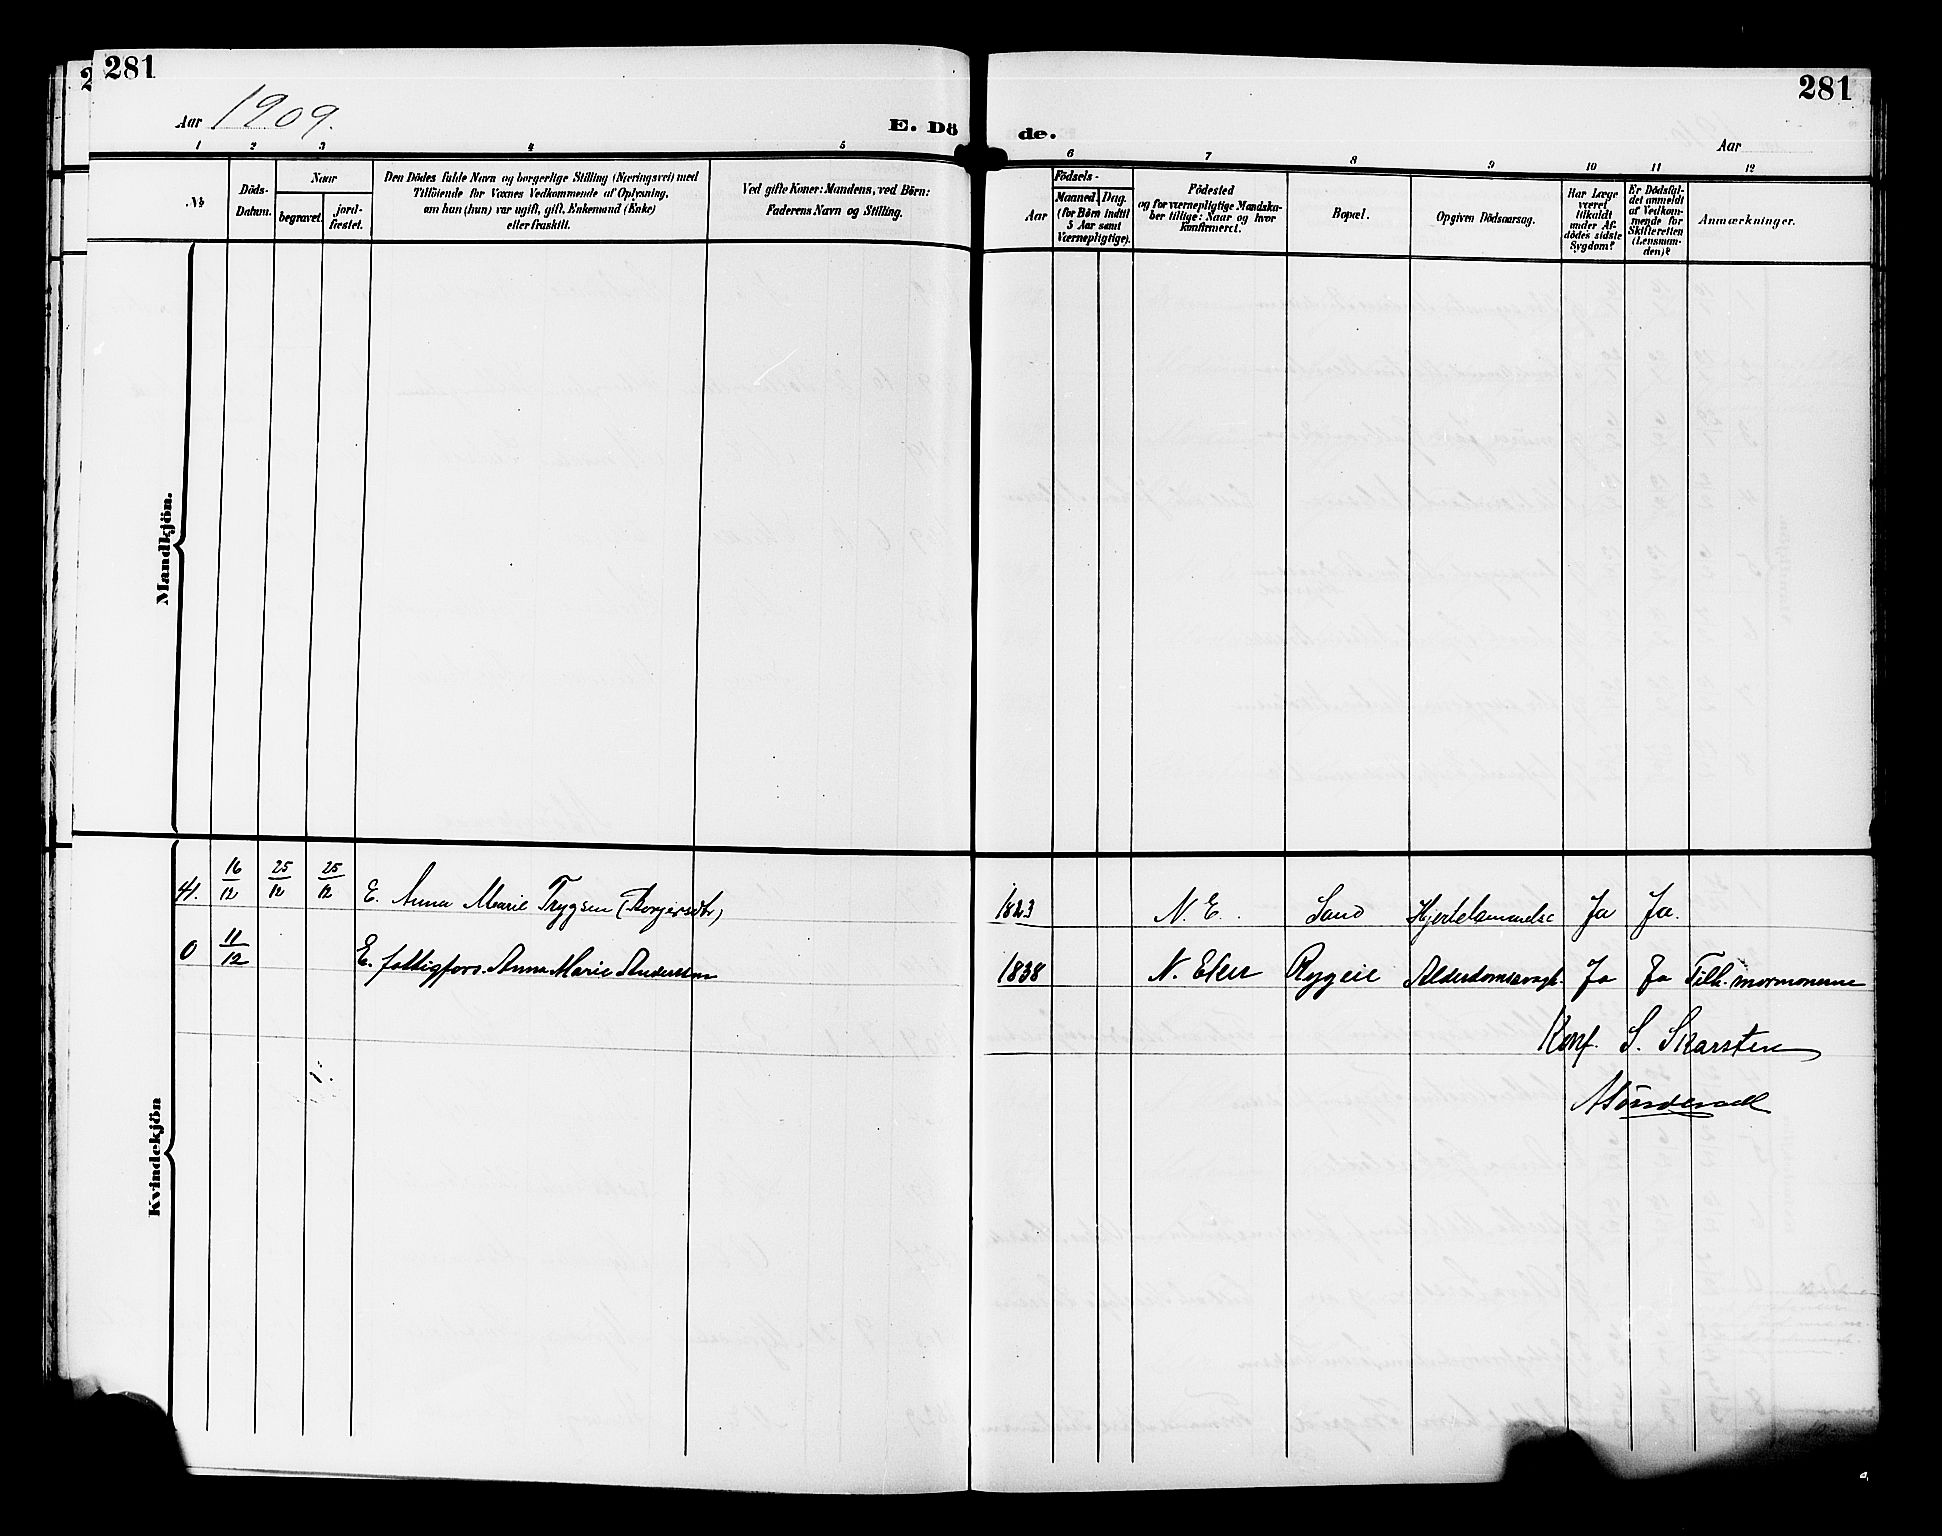 281
281
Aar 1909.
E. Dö de.
Aar
1 2 3 4 5 6 7 8 9 10 11 12
№
Döds-
Datum.
Naar
begravet.
jord-
fæstet.
Den Dödes fulde Navn og borgerlige Stilling (Næringsvei) med
Tilföiende for Voxnes Vedkommende af Oplysning,
om han (hun) var ugift, gift, Enkemand (Enke)
eller fraskilt.
Ved gifte Koner: Mandens, ved Börn:
Faderens Navn og Stilling.
Födsels-
Aar
Maaned. Dag.
(for Börn indtil
5 Aar samt
Værnepligtige).
Födested
og for værnepligtige Mandska-
ber tillige: Naar og hvor
konfirmeret.
Bopæl.
Opgiven Dödsaarsag.
Har Læge
været
tilkaldt
under Af-
dödes sidste
Sygdom?
Er Dödsfal-
det anmeldt
af Vedkom-
mende for
Skifteretten
(Lensman-
den)?
Anmærkninger.
Mandkjön.
Kvindekjön
41. 16/12 25/12 25/12 E. Anna Marie Trygsen (Borgersdtr) 1823 N. E. Sand Hjertelammelse Ja Ja.
0 11/12 E. fattigfors. Anna Marie Andersen 1838 N. Eker Rygeie Alderdomssvagh. Ja Ja Tilh. mormonerne
Konf. S. Skarsten